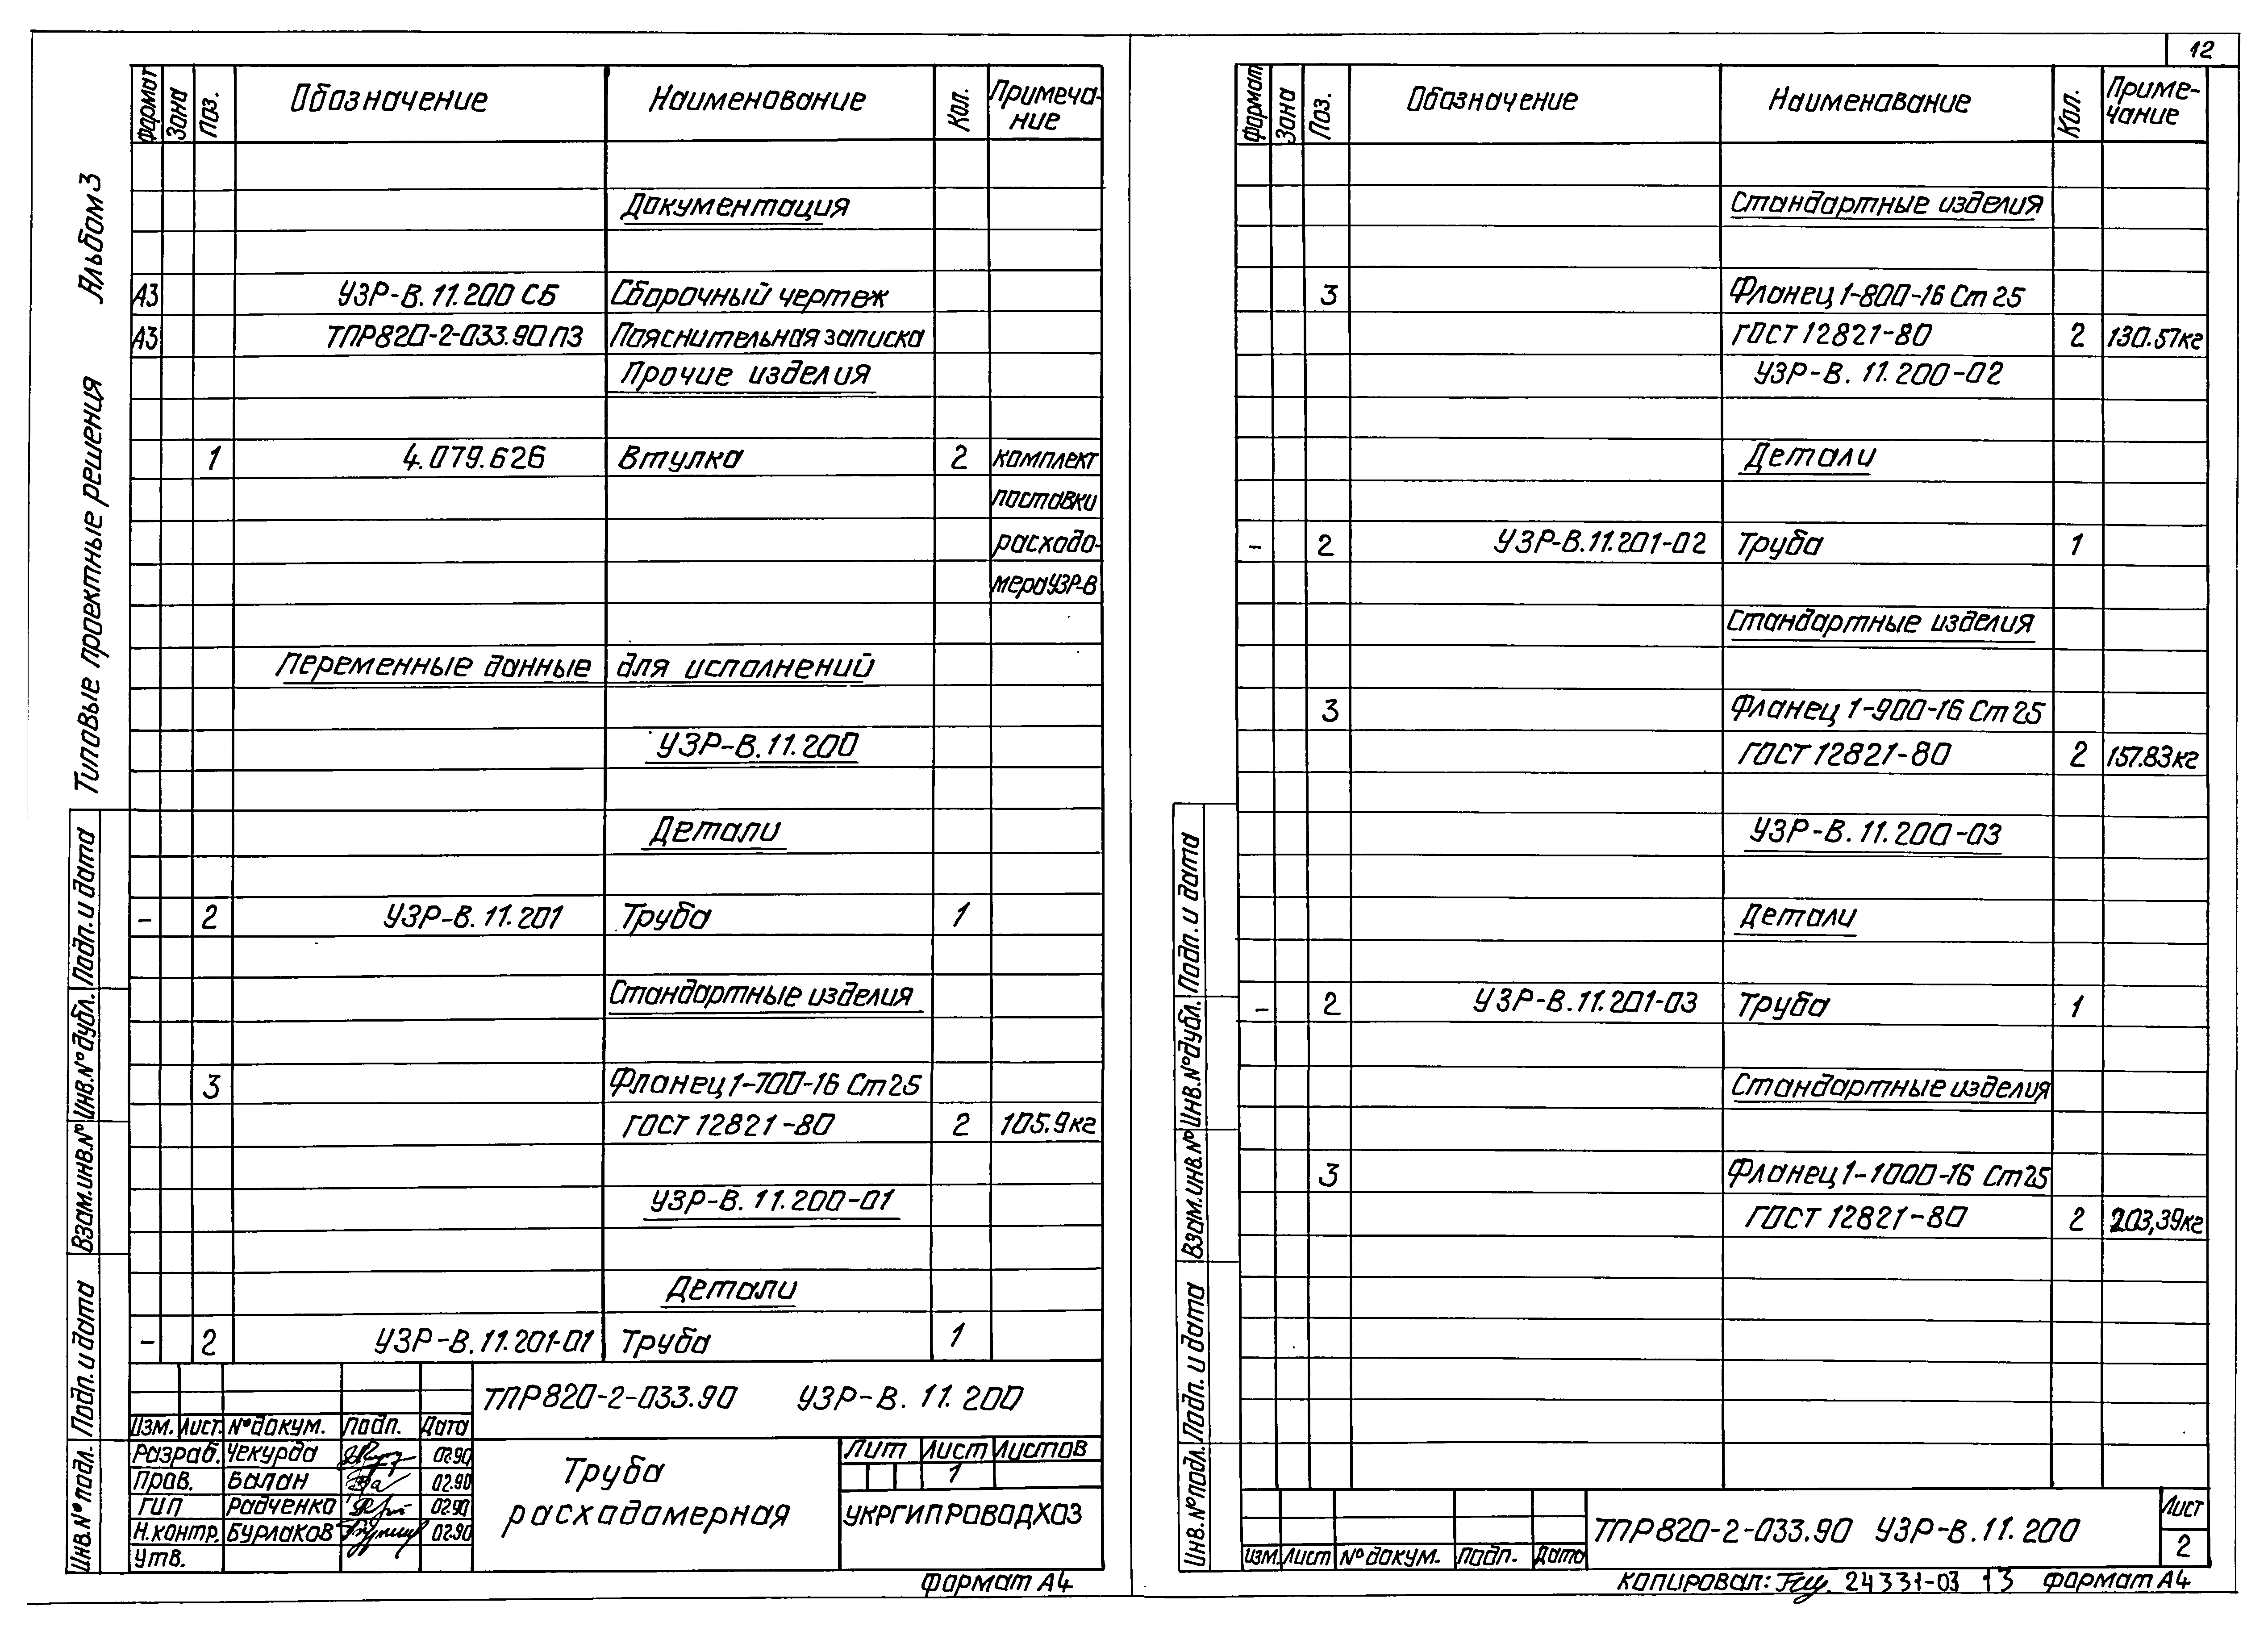 Альбом 3
Типовые проектные решения
Формат Зона Поз. Обозначение Наименование Кол. Примеча-
ние
Документация
А3 УЗР-В.11.200 СБ Сборочный чертеж
А3 ТПР820-2-033.90 ПЗ Пояснительная записка
Прочие изделия
1 4.079.626 Втулка 2 комплект
поставки
расходо-
мера УЗР-В
Переменные данные для исполнений
УЗР-В.11.200
Детали
- 2 УЗР-В.11.201 Труба 1
Стандартные изделия
3 Фланец 1-700-16 Ст 25
ГОСТ 12821-80 2 105.9кг
УЗР-В.11.200-01
Детали
- 2 УЗР-В.11.201-01 Труба 1
Подп. и дата
Инв.№ дубл.
Взам.инв.№
Подп. и дата
Инв.№ подл.
ТПР820-2-033.90 УЗР-В.11.200
Изм. Лист. № докум. Подп. Дата
Разраб. Чекурда 02.90
Пров. Балан 02.90
ГИП Радченко 02.90
Н.контр. Бурлаков 02.90
Утв.
Труба
расходомерная
Лит Лист Листов
1
УКРГИПРОВОДХОЗ
Формат А4
12
Формат Зона Поз. Обозначение Наименование Кол. Приме-
чание
Стандартные изделия
3 Фланец 1-800-16 Ст 25
ГОСТ 12821-80 2 130.57кг
УЗР-В.11.200-02
Детали
- 2 УЗР-В.11.201-02 Труба 1
Стандартные изделия
3 Фланец 1-900-16 Ст 25
ГОСТ 12821-80 2 157.83кг
УЗР-В.11.200-03
Детали
- 2 УЗР-В.11.201-03 Труба 1
Стандартные изделия
3 Фланец 1-1000-16 Ст 25
ГОСТ 12821-80 2 203,39кг
Подп. и дата
Инв.№ дубл.
Взам.инв.№
Подп. и дата
Инв.№ подл.
Изм. Лист № докум. Подп. Дата
ТПР820-2-033.90 УЗР-В.11.200
Лист
2
Копировал: 24331-03 13 Формат А4